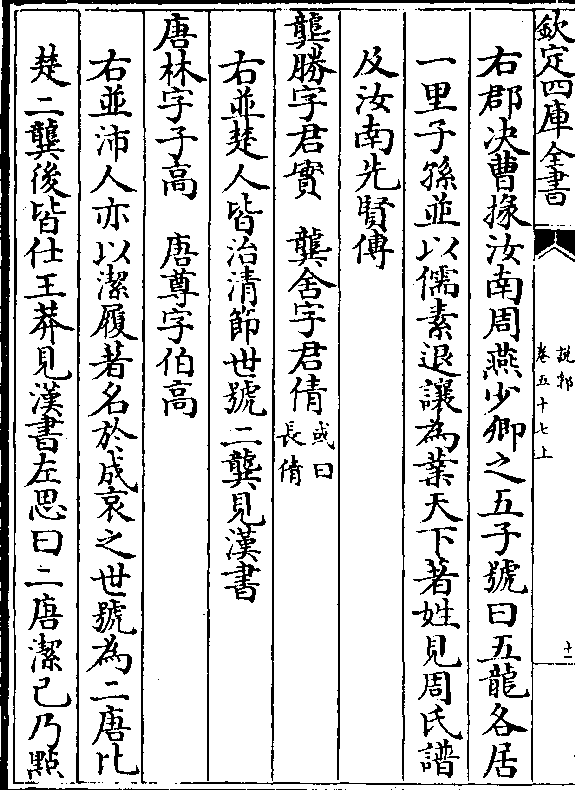 欽定四庫全書
說郛
卷五十七上
十一
右郡决曹掾汝南周燕少卿之五子號曰五龍各居
一里子孫並以儒素退讓為業天下著姓見周氏譜
及汝南先賢傳
龔勝字君實　龔舍字君倩或曰長倩
右並楚人皆治清節世號二龔見漢書
唐林字子高　唐尊字伯高
右並沛人亦以潔履著名於成哀之世號為二唐比
楚二龔後皆仕王莽見漢書左思曰二唐潔己乃點